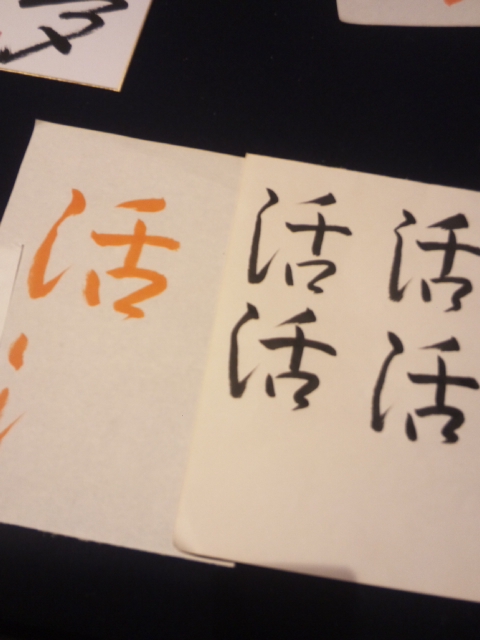 活
活 活
活 活